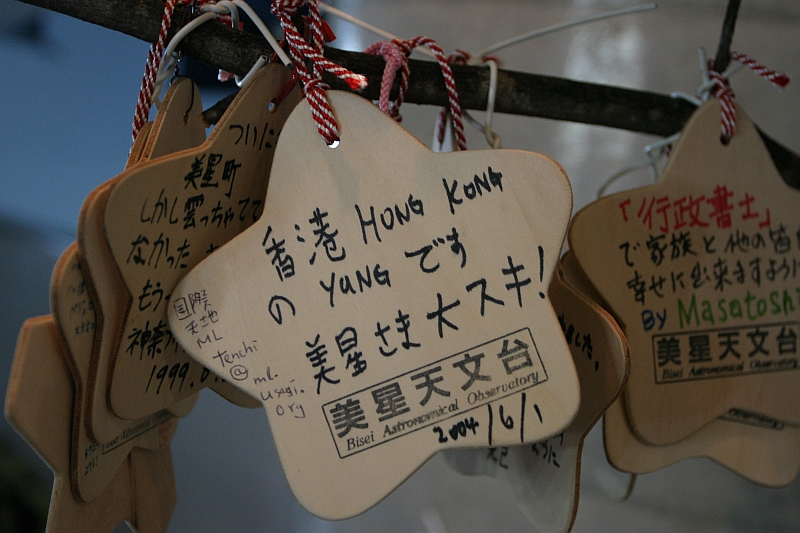 ついに
美星町
しかし雲っちゃてて
なかった
もう
神奈
1999.
香港 HONG KONG
の YUNG です
美星さま 大スキ!
国際
天地
ML
tenchi
@
ml.
usagi.
org
美星天文台
Bisei Astronomical Observatory
2004/6/1
「行政書士」
で家族と他の皆
幸せに出来ますように
By Masatoshi
美星天文台
Bisei Astronomical Observatory
した。